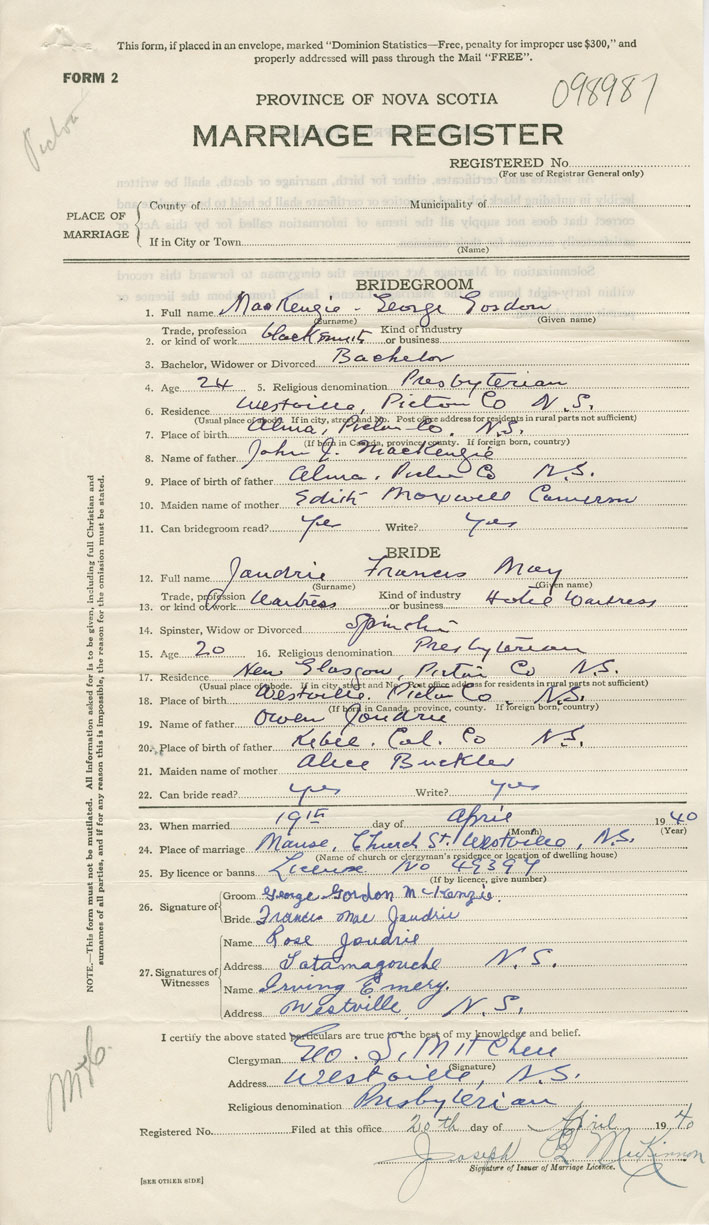 This form, if placed in an envelope, marked "Dominion Statistics—Free, penalty for improper use $300," and
properly addressed will pass through the Mail "FREE".
FORM 2
098987
Pictou
PROVINCE OF NOVA SCOTIA
MARRIAGE REGISTER
REGISTERED No.
(For use of Registrar General only)
PLACE OF MARRIAGE
County of Municipality of
If in City or Town
(Name)
BRIDEGROOM
1. Full name MacKenzie - George Gordon
(Surname) (Given name)
2. Trade, profession or kind of work blacksmith Kind of industry or business
3. Bachelor, Widower or Divorced Bachelor
4. Age 24 5. Religious denomination Presbyterian
6. Residence Westville, Pictou Co N.S.
(Usual place of abode. If in city, street and No. Post office address for residents in rural parts not sufficient)
7. Place of birth Alma, Pictou Co. N.S.
(If born in Canada, province, county. If foreign born, country)
8. Name of father John J. MacKenzie
9. Place of birth of father Alma, Pictou Co N.S.
10. Maiden name of mother Edith Maxwell Cameron
11. Can bridegroom read? Yes Write? Yes
BRIDE
12. Full name Jaudrie Francis May
(Surname) (Given name)
13. Trade, profession or kind of work Waitress Kind of industry or business Hotel Waitress
14. Spinster, Widow or Divorced Spinster
15. Age 20 16. Religious denomination Presbyterian
17. Residence New Glasgow, Pictou Co N.S.
(Usual place of abode. If in city, street and No. Post office address for residents in rural parts not sufficient)
18. Place of birth Westville, Pictou Co. N.S.
(If born in Canada, province, county. If foreign born, country)
19. Name of father Owen Joudrie
20. Place of birth of father Col. Co N.S.
21. Maiden name of mother Alice Buckler
22. Can bride read? yes Write? yes
23. When married 19th day of April 1940
(Month) (Year)
24. Place of marriage Manse, Church St. Westville, N.S.
(Name of church or clergyman's residence or location of dwelling house)
25. By licence or banns License No 49397
(If by licence, give number)
26. Signature of
Groom George Gordon McKenzie
Bride Francis Mae Jaudrie
27. Signatures of Witnesses
Name Rose Joudrie
Address Tatamagouche N.S.
Name Irving Emery.
Address Westville, N.S.
I certify the above stated particulars are true to the best of my knowledge and belief.
Clergyman Geo. S. Mitchell
(Signature)
Address Westville, N.S.
Religious denomination Presbyterian
Registered No. Filed at this office 20th day of April 1940
Joseph B. MacKinnon
Signature of Issuer of Marriage Licence.
[SEE OTHER SIDE]
NOTE.—This form must not be mutilated. All information asked for is to be given, including full Christian and
surnames of all parties, and if for any reason this is impossible, the reason for the omission must be stated.